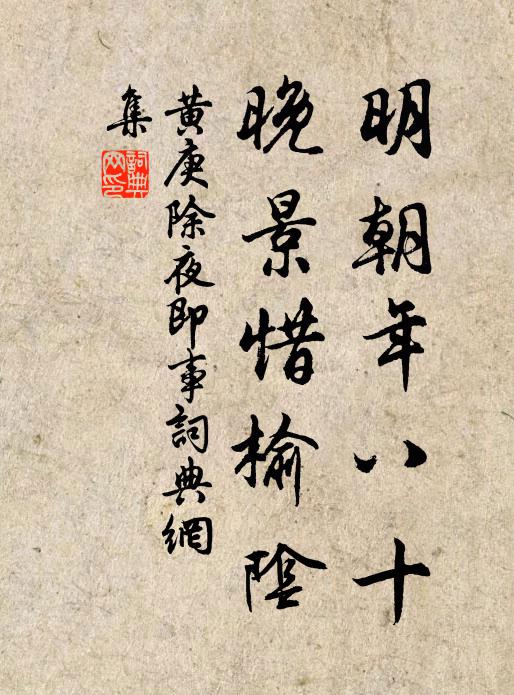 明朝年八十
晚景惜榆陰
黄庚除夜即事詞典網
集
詞典网印